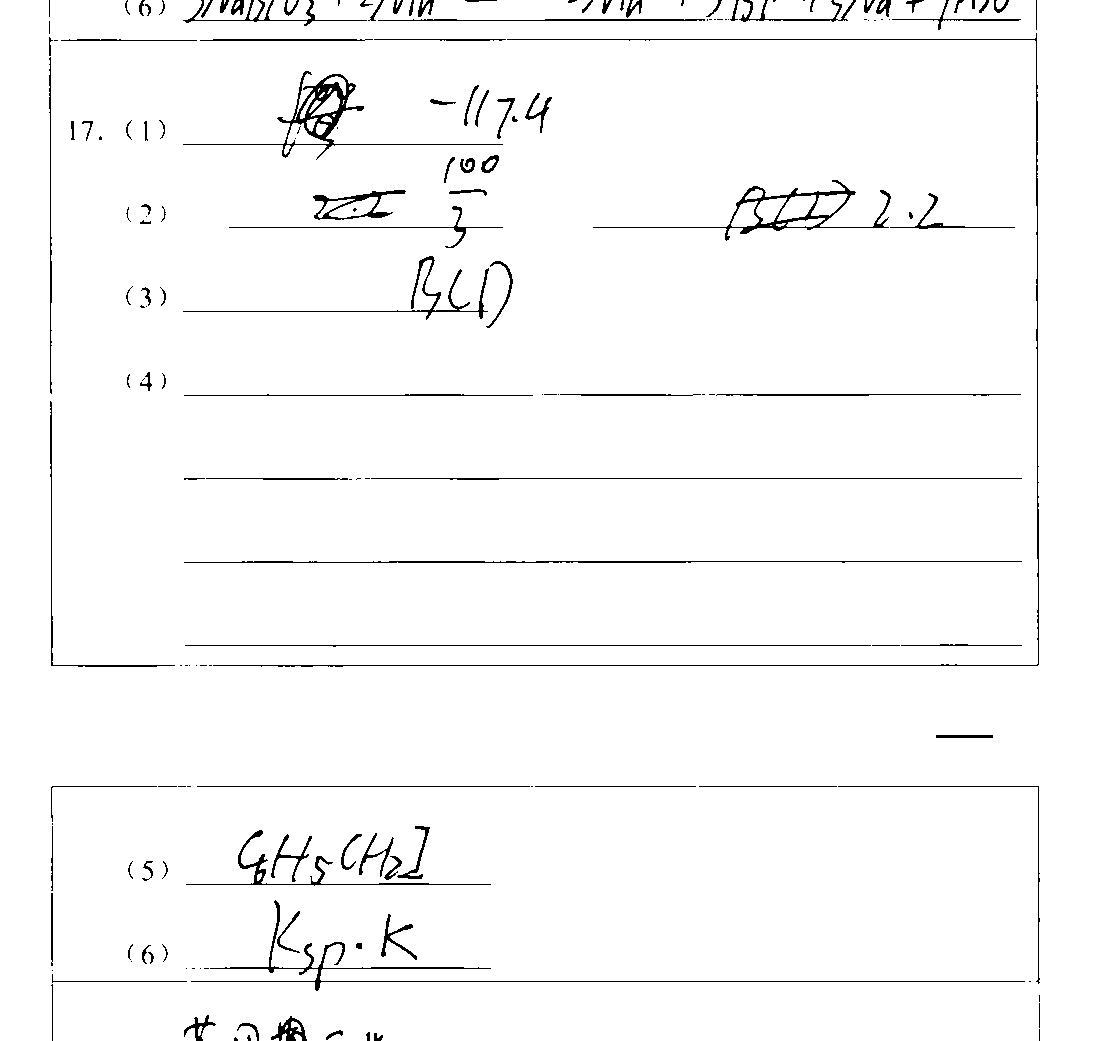 (6)
17. (1) -117.4
(2) 100/3 2.2
(3) BCD
(4)
(5) C6H5CH2I
(6) Ksp·K